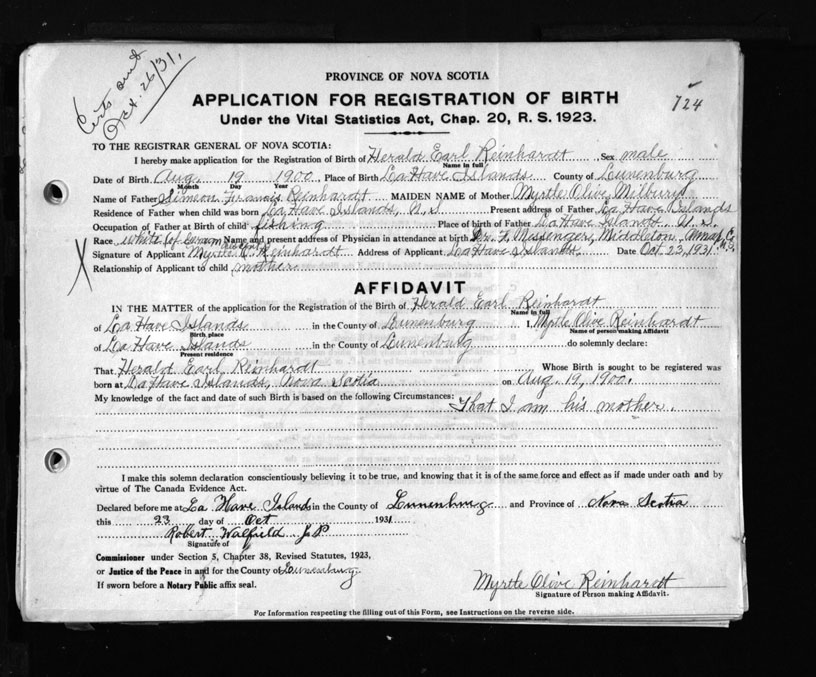 Certs sent
Oct. 26/31.
PROVINCE OF NOVA SCOTIA
724
APPLICATION FOR REGISTRATION OF BIRTH
Under the Vital Statistics Act, Chap. 20, R. S. 1923.
TO THE REGISTRAR GENERAL OF NOVA SCOTIA:
I hereby make application for the Registration of Birth of Herald Earl Reinhardt, Sex male
Name in full
Date of Birth Aug. 19 1900 Place of Birth La Have Islands County of Lunenburg
Month Day Year
Name of Father Simeon Francis Reinhardt MAIDEN NAME of Mother Myrtle Olive Milbury
Residence of Father when child was born La Have Islands, N.S Present address of Father La Have Islands
Occupation of Father at Birth of child fishing Place of birth of Father La Have Islands N.S.
Race white (of German descent) Name and present address of Physician in attendance at birth Dr. F. Messenger, Middleton, Annap. Co. N.S.
Signature of Applicant Myrtle O. Reinhardt Address of Applicant La Have Islands Date Oct 23, 1931
Relationship of Applicant to child mother
X
AFFIDAVIT
IN THE MATTER of the application for the Registration of the Birth of Herald Earl Reinhardt
Name in full
of La Have Islands in the County of Lunenburg I, Myrtle Olive Reinhardt
Birth place Name of person making Affidavit
of La Have Islands in the County of Lunenburg do solemnly declare:
Present residence
That Herald Earl Reinhardt Whose Birth is sought to be registered was
born at La Have Islands, Nova Scotia on Aug. 19, 1900.
My knowledge of the fact and date of such Birth is based on the following Circumstances: That I am his mother.
I make this solemn declaration conscientiously believing it to be true, and knowing that it is of the same force and effect as if made under oath and by
virtue of The Canada Evidence Act.
Declared before me at La Have Islands in the County of Lunenburg and Province of Nova Scotia
this 23 day of Oct 1931
Robert Walfield J P
Signature of
Commissioner under Section 5, Chapter 38, Revised Statutes, 1923,
or Justice of the Peace in and for the County of Lunenburg
If sworn before a Notary Public affix seal.
Myrtle Olive Reinhardt
Signature of Person making Affidavit.
For Information respecting the filling out of this Form, see Instructions on the reverse side.